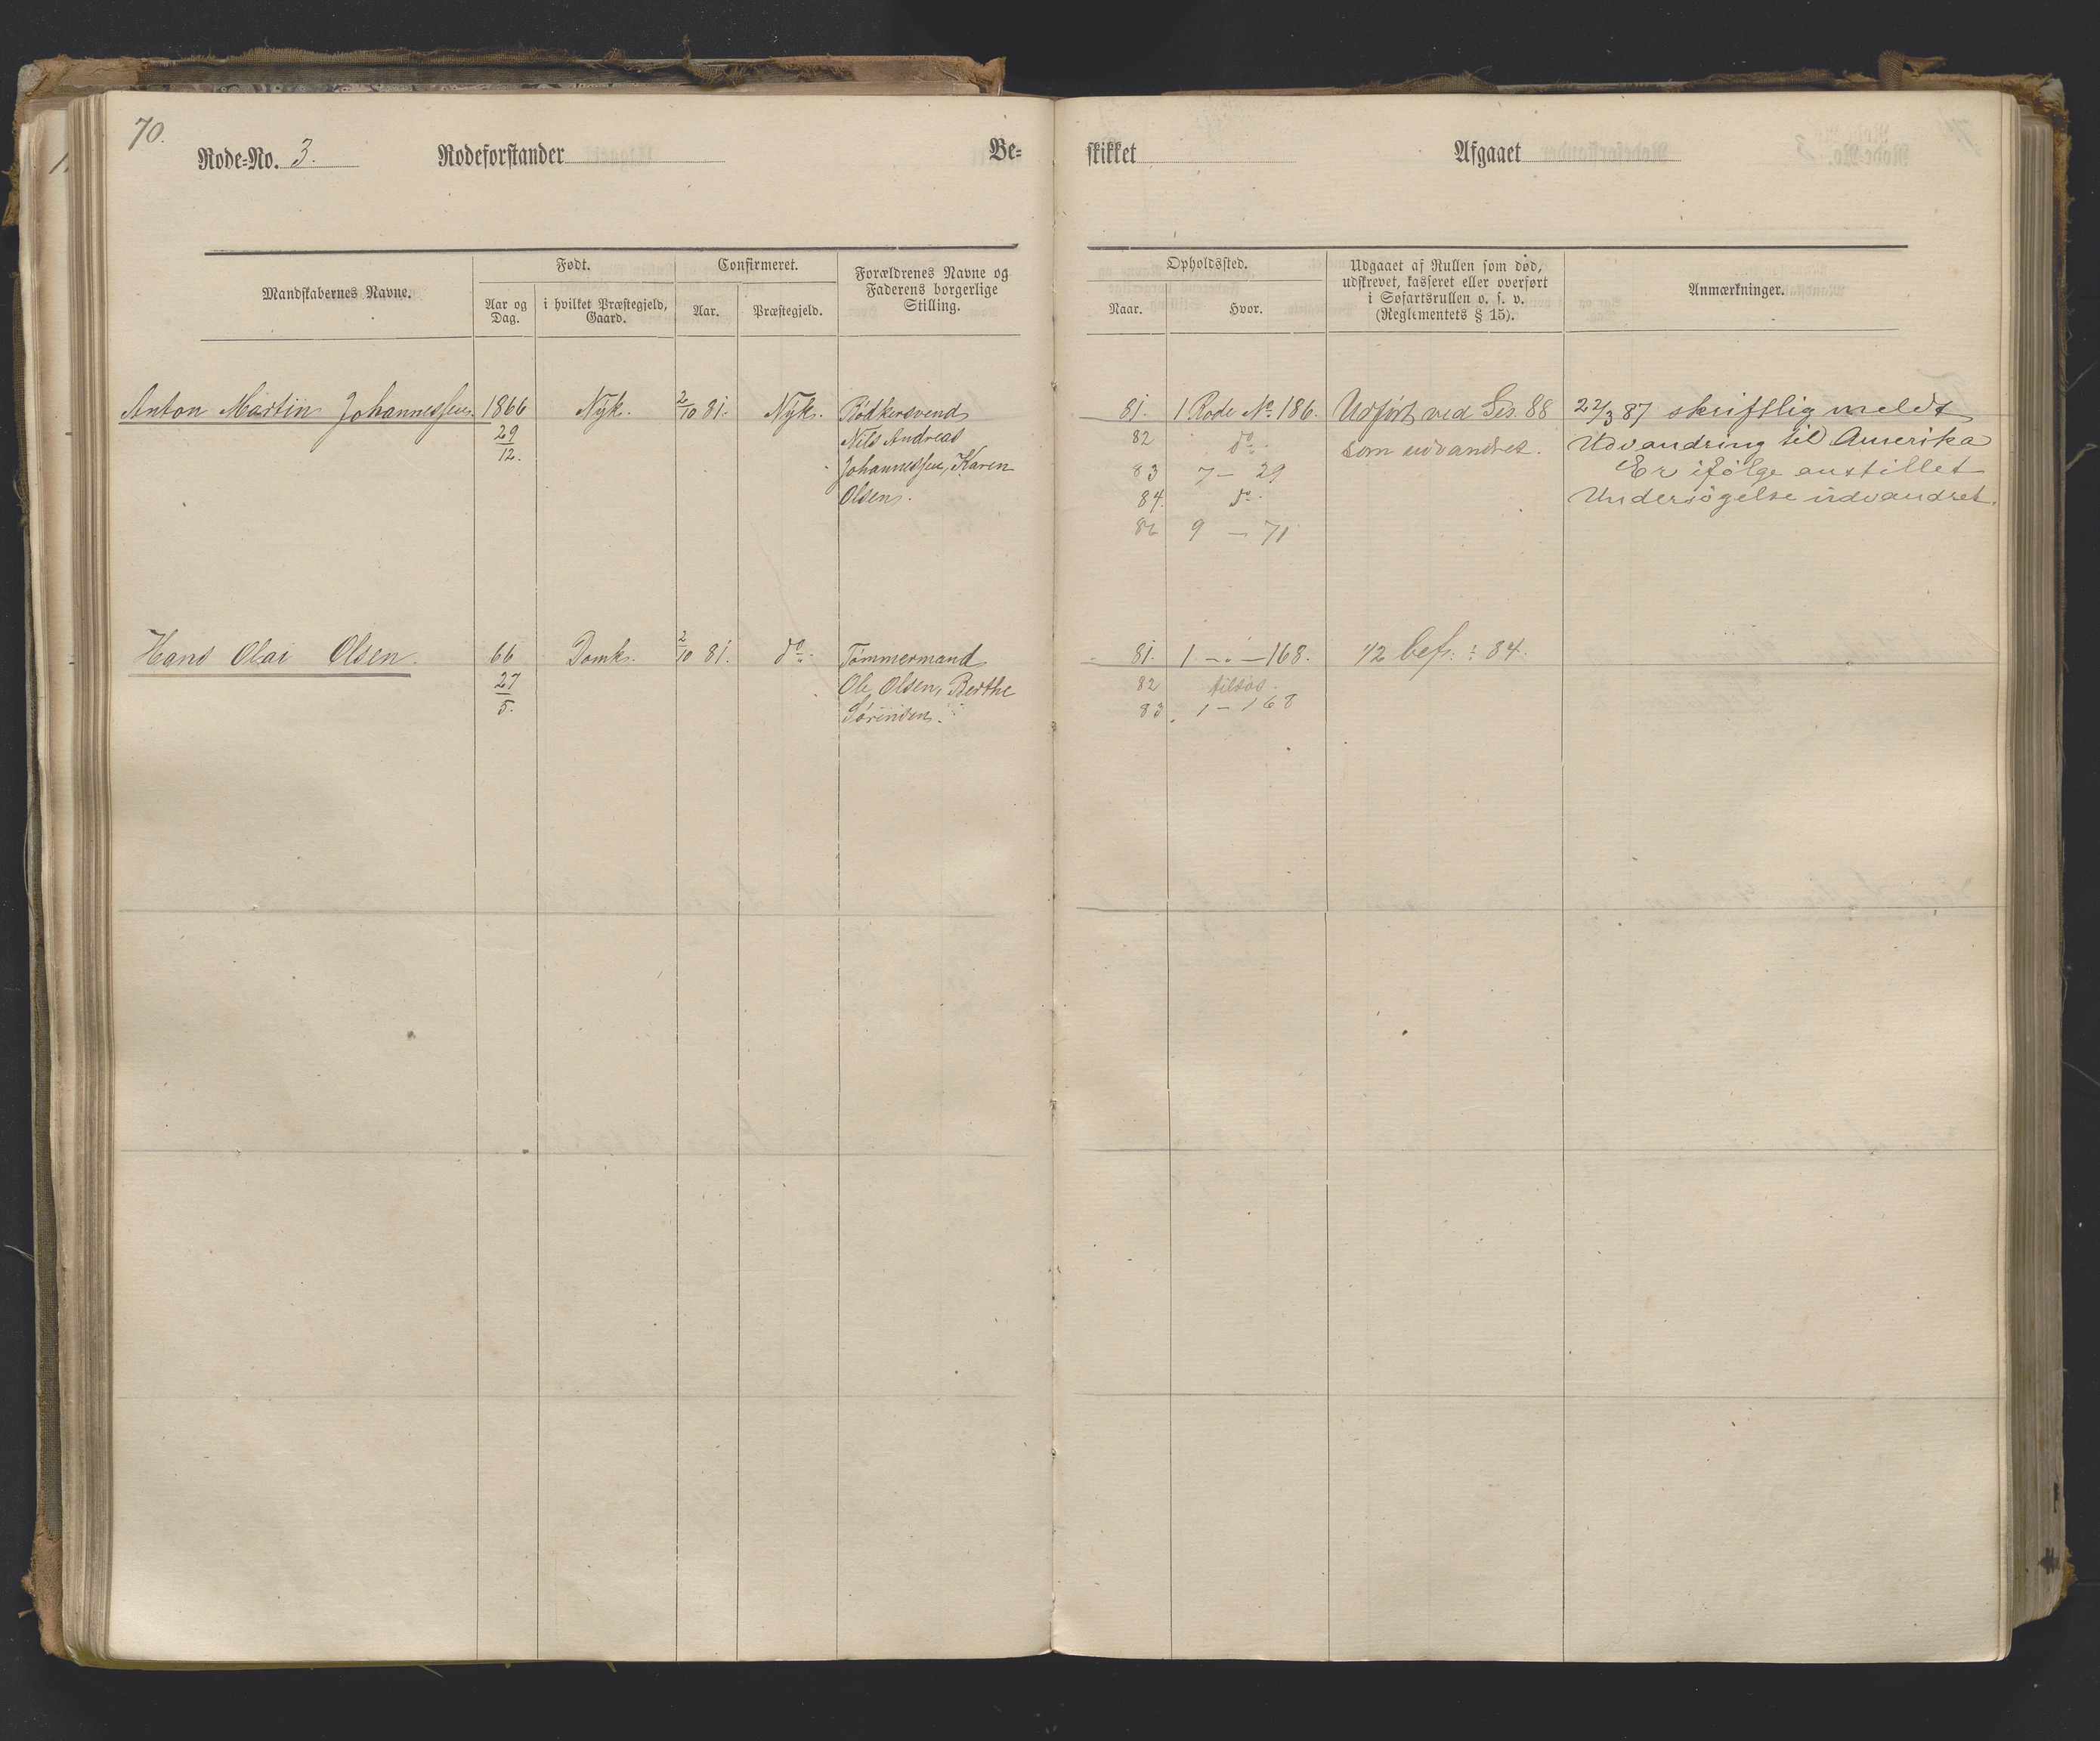 70.
Rode-No. 3. Rodeforstander Be-
skikket Afgaaet
Mandskabernes Navne.
Født.
Aar og
Dag.
i hvilket Præstegjeld,
Gaard.
Confirmeret.
Aar.
Præstegjeld.
Forældrenes Navne og
Faderens borgerlige
Stilling.
Opholdssted.
Naar.
Hvor.
Udgaaet af Rullen som død,
udskrevet, kasseret eller overført
i Søfartsrullen o. s. v.
(Reglementets § 15).
Anmærkninger.
Anton Martin Johannessen.
1866
29/12.
Nyk.
2/10 81.
Nyk.
Bødkersvend
Nils Andreas
Johannessen, Karen
Olsen.
81. 1 Rode No. 186.
82 do.
83 7 — 29
84. do.
86 9 — 71
Udført ved Ses. 88
som udvandret.
22/3 87 skriftlig meldt
Udvandring til Amerika
Er ifølge anstillet
Undersøgelse udvandret.
Hans Olai Olsen.
66
27/5.
Domk.
2/10 81.
do.
Tømmermand
Ole Olsen, Berthe
Sørensen.
81. 1. — 168.
82 tilsøs.
83. 1 — 168
42 bef. : 84.